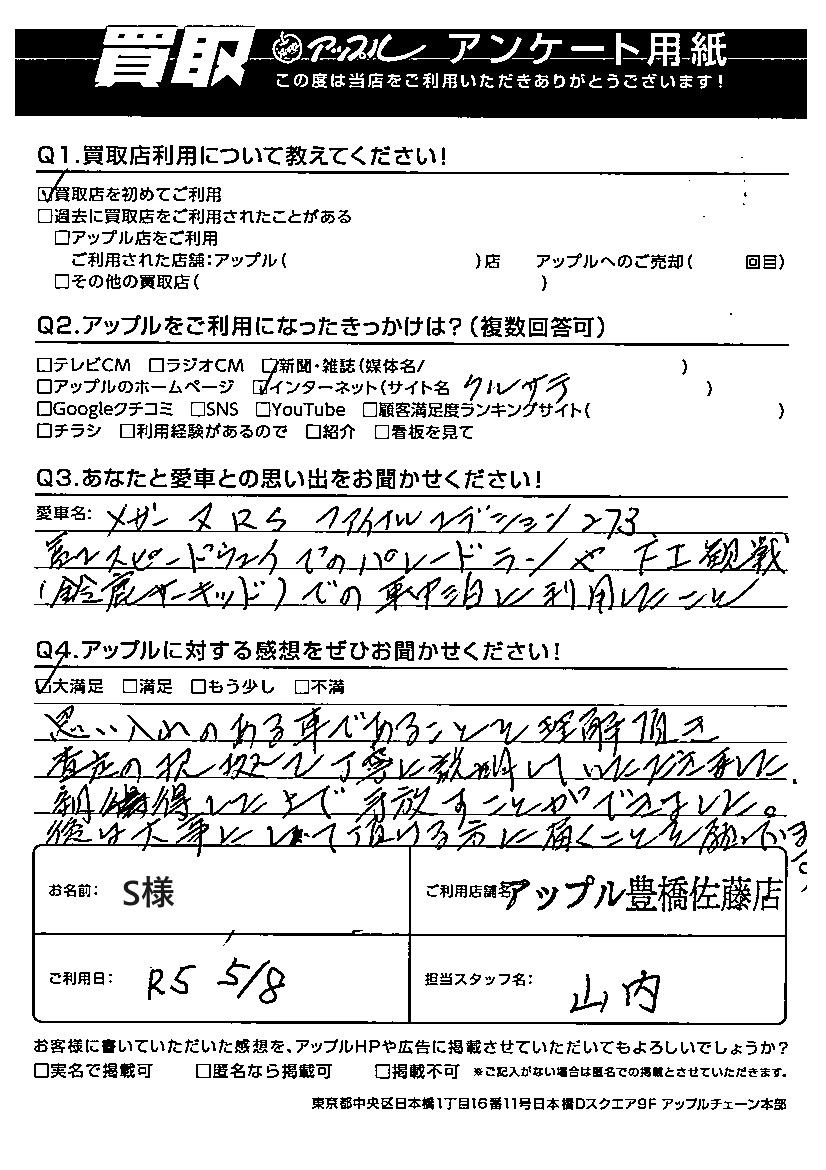 買取 アップル アンケート用紙
この度は当店をご利用いただきありがとうございます!
Q1.買取店利用について教えてください!
☑買取店を初めてご利用
□過去に買取店をご利用されたことがある
□アップル店をご利用
ご利用された店舗:アップル( )店 アップルへのご売却( 回目)
□その他の買取店( )
Q2.アップルをご利用になったきっかけは?(複数回答可)
□テレビCM □ラジオCM □新聞・雑誌(媒体名/ )
□アップルのホームページ ☑インターネット(サイト名 クルサテ )
□Googleクチコミ □SNS □YouTube □顧客満足度ランキングサイト( )
□チラシ □利用経験があるので □紹介 □看板を見て
Q3.あなたと愛車との思い出をお聞かせください!
愛車名: メガーヌRS ファイナルエディション273
スピードウェイでのパレードランや F1観戦
(鈴鹿サーキット)での車中泊に利用したこと
Q4.アップルに対する感想をぜひお聞かせください!
☑大満足 □満足 □もう少し □不満
思い入れのある車であることを理解頂き
査定の根拠まで丁寧に説明していただきました。
納得した上で手放すことができました。
後は大事にして頂ける方に届くことを願っています。
お名前: S様 ご利用店舗名 アップル豊橋佐藤店
ご利用日: R5 5/8 担当スタッフ名: 山内
お客様に書いていただいた感想を、アップルHPや広告に掲載させていただいてもよろしいでしょうか?
□実名で掲載可 □匿名なら掲載可 □掲載不可 ※ご記入がない場合は匿名での掲載とさせていただきます。
東京都中央区日本橋1丁目16番11号日本橋Dスクエア9F アップルチェーン本部